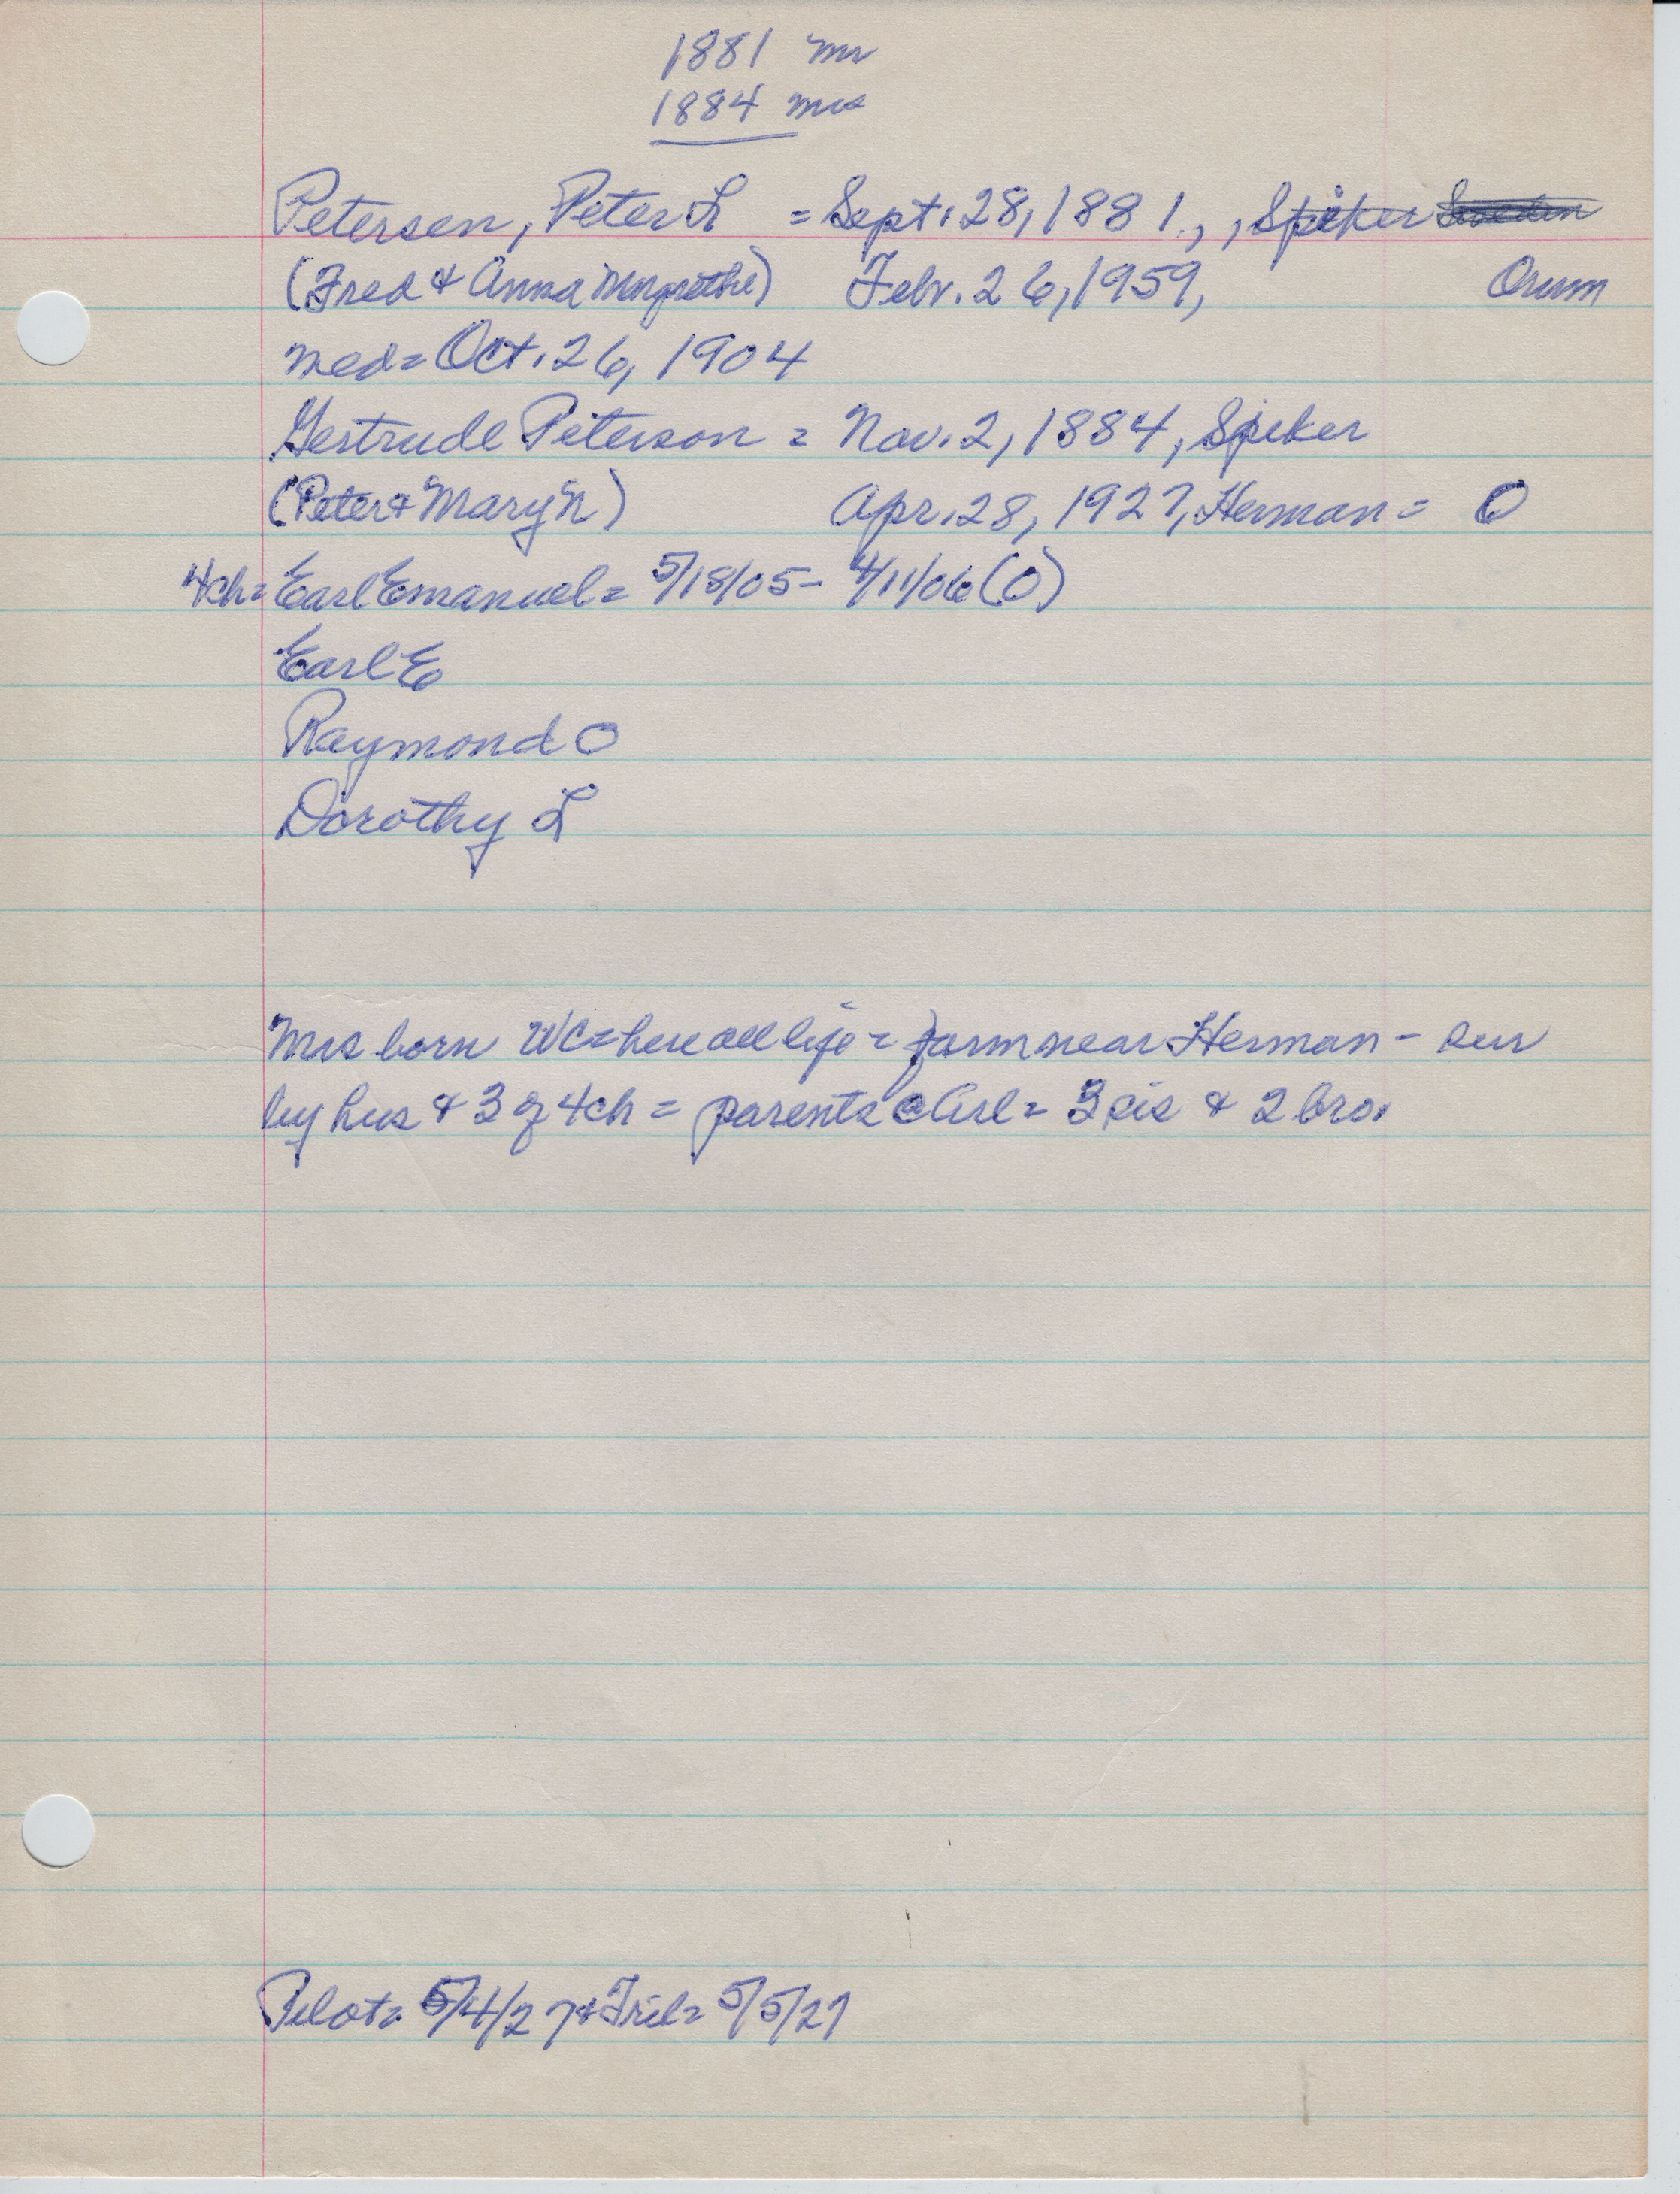 1881 Mr
1884 Mrs
Petersen, Peter L = Sept. 28, 1881, , Spiker Sweden
(Fred & Anna Margrethe) Febr. 26, 1959, Orum
med = Oct. 26, 1904
Gertrude Peterson = Nov. 2, 1884, Spiker
(Peter & Mary N) Apr. 28, 1927, Herman = O
4ch = Earl Emanuel = 5/18/05 - 4/11/06 (O)
Earl E
Raymond O
Dorothy L
Mrs born WC = here all life = farm near Herman - sur
by hus & 3 of 4ch = parents @ Arl = 3 sis & 2 bro.
Pilot = 5/4/27 & = 5/5/27